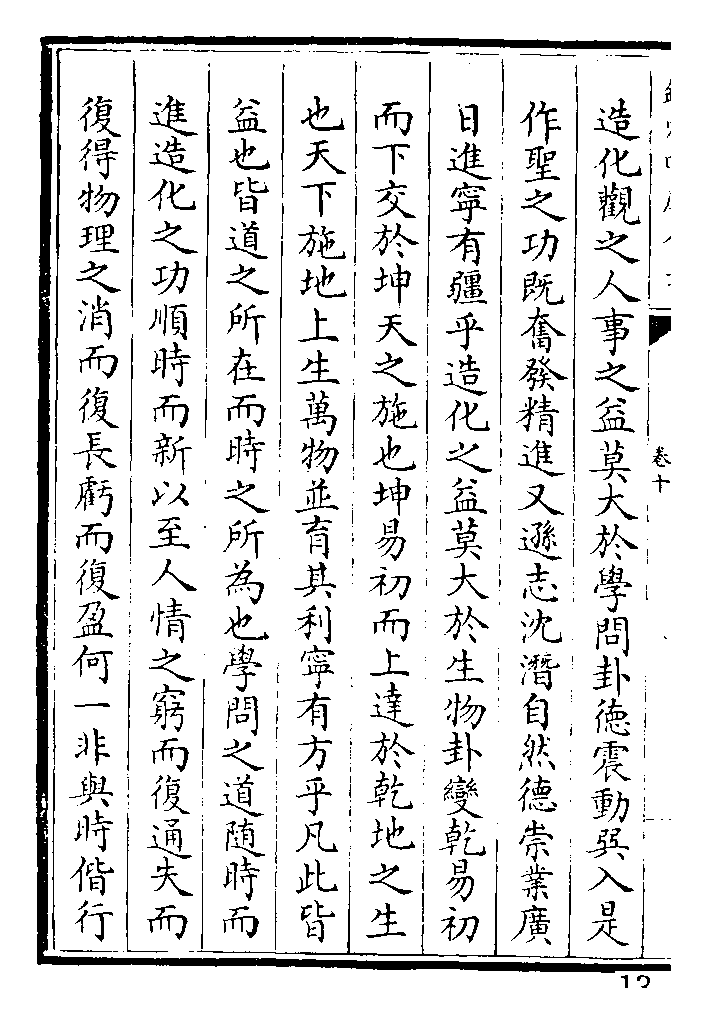 造化觀之人事之益莫大於學問卦德震動巽入是
作聖之功既奮發精進又遜志沈潛自然德崇業廣
日進寧有疆乎造化之益莫大於生物卦變乾易初
而下交於坤天之施也坤易初而上達於乾地之生
也天下施地上生萬物並育其利寧有方乎凡此皆
益也皆道之所在而時之所為也學問之道随時而
進造化之功順時而新以至人情之窮而復通失而
復得物理之消而復長虧而復盈何一非與時偕行
卷十